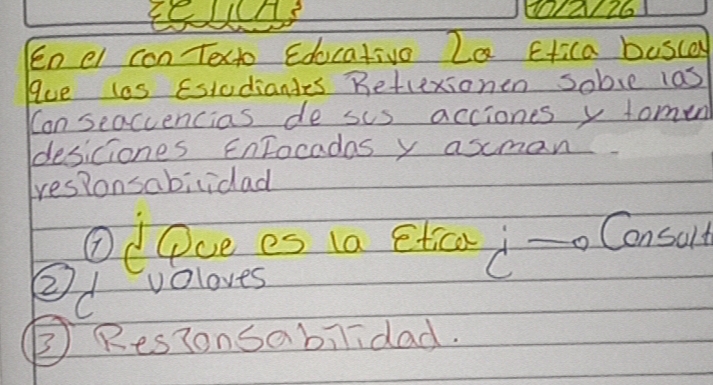 ETICA
10/2/26
En el con Texto Educativo La Etica busca
que los Estudiantes Reflexionen sobre las
Conseacuencias de sus acciones y tomen
desiciones Enfocadas y asuman
responsabilidad
① ¿Que es la Etica? → Consult
② ¿ valores
③ Responsabilidad.